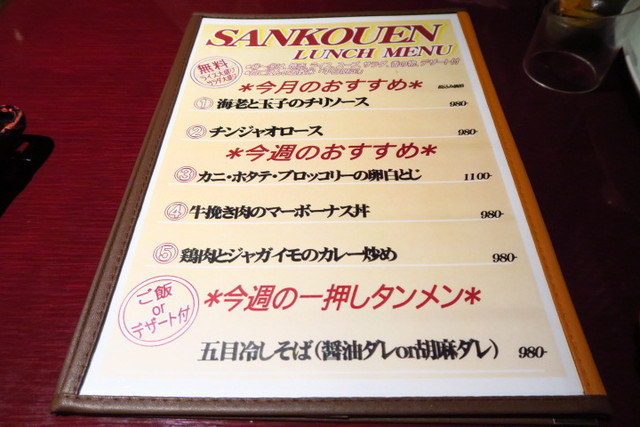 SANKOUEN
LUNCH MENU
無料
ライス大盛り
サラダ大盛り
*今月のおすすめ*
① 海老と玉子のチリソース 980-
② チンジャオロース 980-
*今週のおすすめ*
③ カニ・ホタテ・ブロッコリーの卵白とじ 1100-
④ 牛挽き肉のマーボーナス丼 980-
⑤ 鶏肉とジャガイモのカレー炒め 980-
ご飯
or
デザート付
*今週の一押しタンメン*
五目冷しそば(醤油ダレor胡麻ダレ) 980-